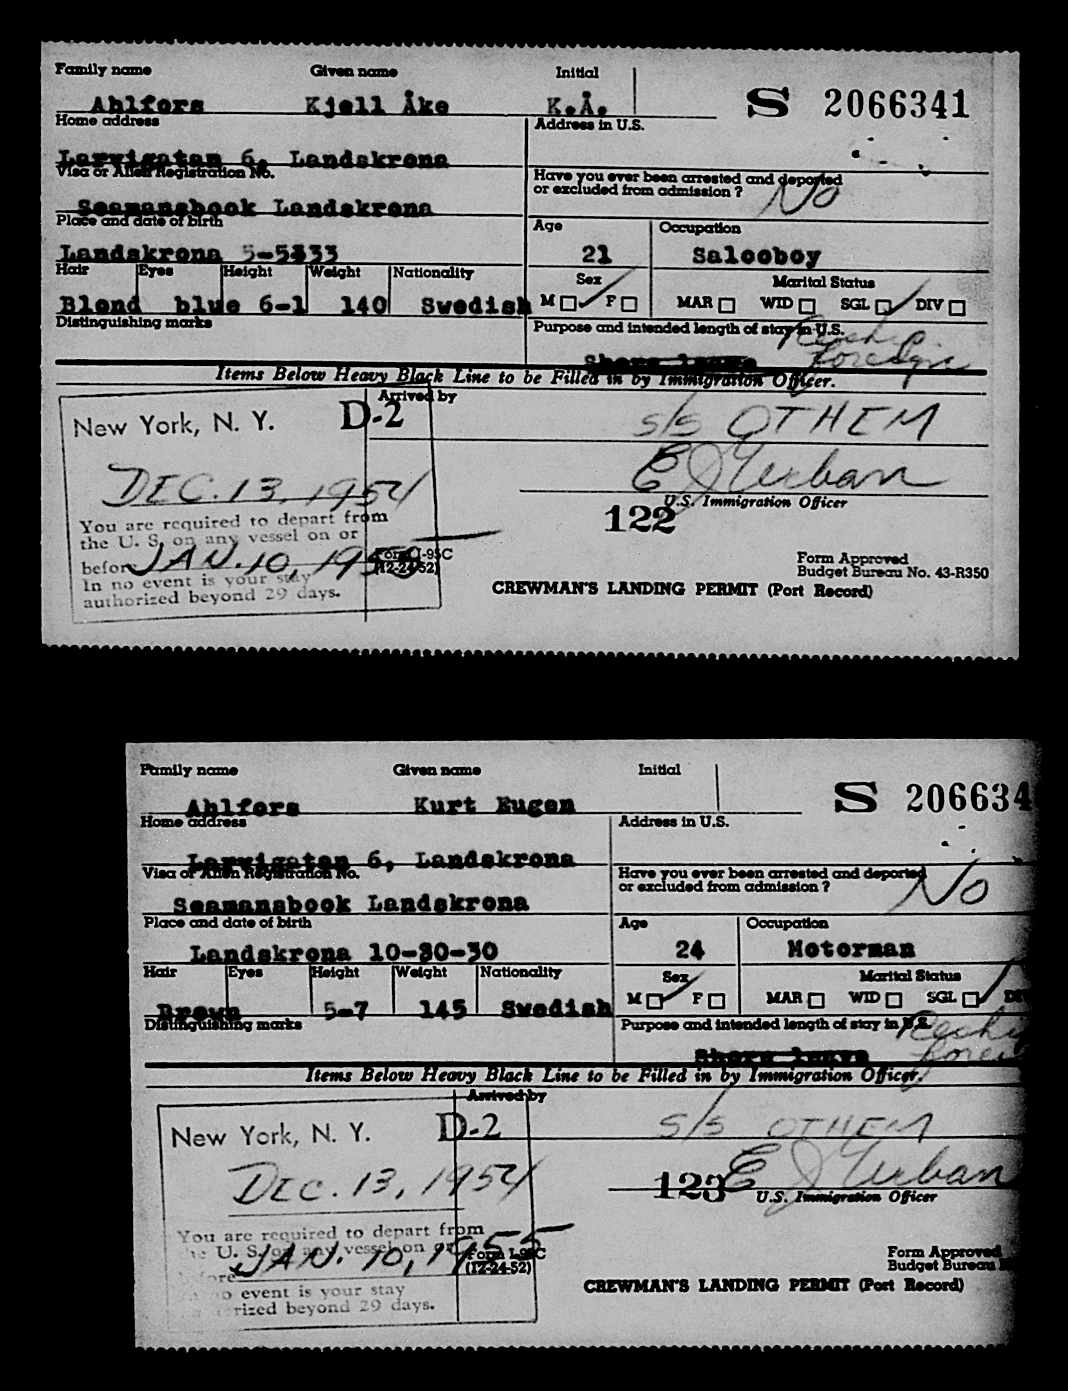 Family name Given name Initial
Ahlfors Kjell Åke K.Å. S 2066341
Home address Address in U.S.
Larvigatan 6, Landskrona
Visa or Alien Registration No. Have you ever been arrested and deported
or excluded from admission? No
Seamansbook Landskrona
Place and date of birth Age Occupation
Landskrona 5-5-33 21 Salooboy
Hair Eyes Height Weight Nationality Sex Marital Status
Blond blue 6-1 140 Swedish M F MAR WID SGL DIV
Distinguishing marks Purpose and intended length of stay in U.S.
Shore leave Foreign
Items Below Heavy Black Line to be Filled in by Immigration Officer.
Arrived by
New York, N. Y. D-2 S/S OTHEM
DEC. 13, 1954
U.S. Immigration Officer
You are required to depart from
the U. S. on any vessel on or 122
before JAN. 10, 1955 Form I-95C
(12-24-52)
In no event is your stay
authorized beyond 29 days.
Form Approved
Budget Bureau No. 43-R350
CREWMAN'S LANDING PERMIT (Port Record)
Family name Given name Initial
Ahlfors Kurt Eugen S 206634
Home address Address in U.S.
Larvigatan 6, Landskrona
Visa or Alien Registration No. Have you ever been arrested and deported
or excluded from admission? No
Seamansbook Landskrona
Place and date of birth Age Occupation
Landskrona 10-30-30 24 Motorman
Hair Eyes Height Weight Nationality Sex Marital Status
Brown 5-7 145 Swedish M F MAR WID SGL DIV
Distinguishing marks Purpose and intended length of stay in U.S.
Shore leave
Items Below Heavy Black Line to be Filled in by Immigration Officer.
Arrived by
New York, N. Y. D-2 S/S OTHEM
DEC. 13, 1954
123 U.S. Immigration Officer
You are required to depart from
the U. S. on any vessel on or
before JAN. 10, 1955 Form I-95C
(12-24-52)
no event is your stay
rized beyond 29 days.
Form Approved
Budget Bureau
CREWMAN'S LANDING PERMIT (Port Record)